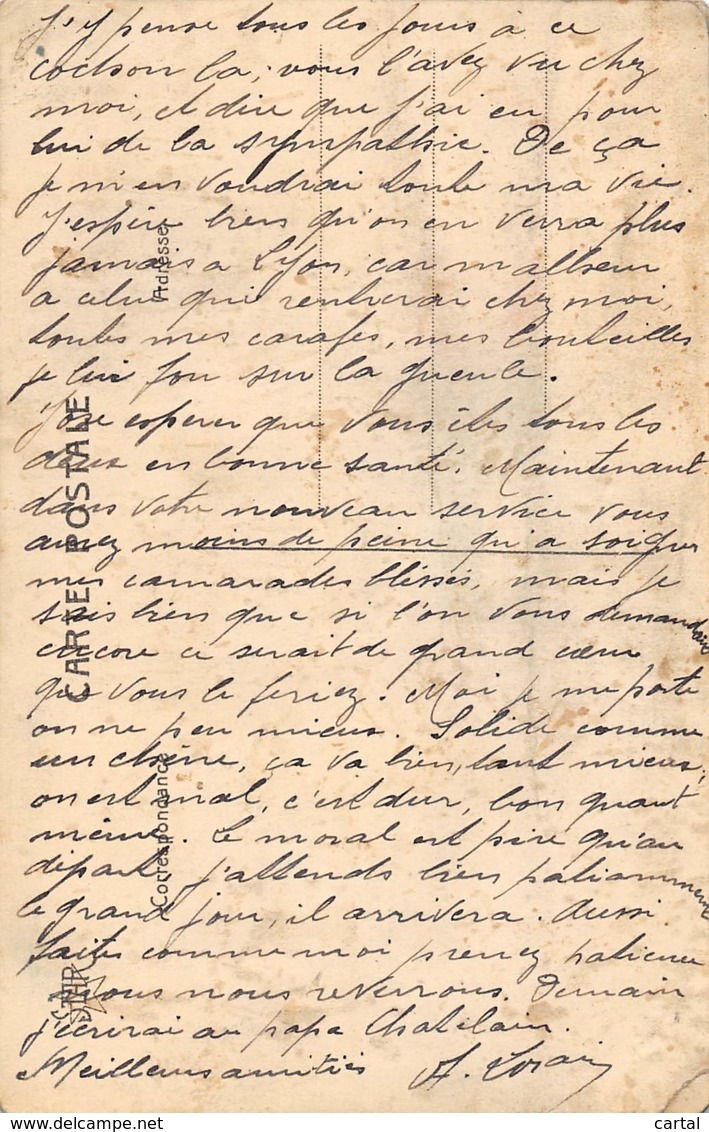 J'y pense tous les jours à ce
cochon la, vous l'avez vu chez
moi, et dire que j'ai eu pour
lui de la sympathie. De ça
je m'en voudrai toute ma vie.
J'espère bien qu'on en verra plus
jamais a Lyon, car malheur
a celui qui rentrerai chez moi,
toutes mes carafes, mes bouteilles
je lui fou sur la gueule.
J'ose esperer que vous êtes tous les
deux en bonne santé. Maintenant
dans votre nouveau service vous
aurez moins de peine qu'a soigner
mes camarades blessés, mais je
sais bien que si l'on vous demandais
encore ce serait de grand cœur
que vous le feriez. Moi je me porte
on ne peu mieux. Solide comme
un chêne, ça va bien, tant mieux,
on est mal, c'est dur, bon quant
même. Le moral est pire qu'au
départ, j'attends bien patiamment
le grand jour, il arrivera. Aussi
faites comme moi prenez patience
nous nous reverrons. Demain
j'écrirai au papa Chatelain.
Meilleurs amitiés A.
CARTE POSTALE
Correspondance
Adresse
STAR
cartal